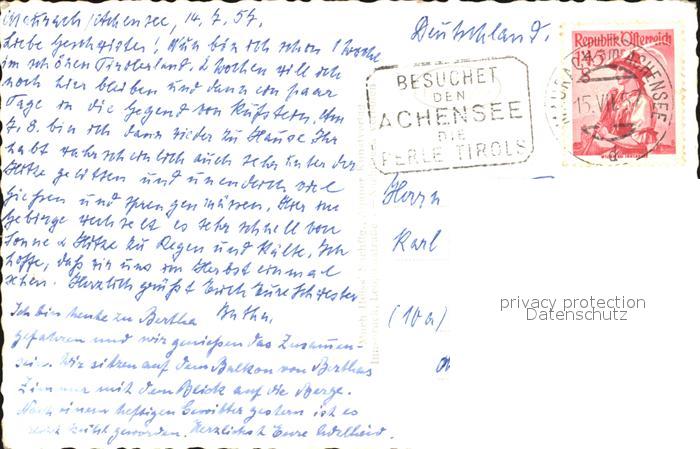 Maurach/Achensee, 14.7.57.
Liebe Geschwister! Nun bin ich schon 1 Woche
im schönen Tirolerland. 2 Wochen will ich
noch hier bleiben und dann ein paar
Tage in die Gegend von Kufstein. Am
7.8. bin ich dann wieder zu Hause. Ihr
habt wahrscheinlich auch sehr unter der
Hitze gelitten und unendlich viel
gießen und sprengen müssen. Hier im
Gebirge wechselt es sehr schnell von
Sonne & Hitze zu Regen und Kälte. Ich
hoffe, daß wir uns im Herbst einmal
sehen. Herzlich grüßt Euch Eure Schwester
Ich bin heute zu Bertha
gefahren und wir genießen das Zusammen
sein. Wir sitzen auf dem Balkon von Berthas
Zimmer mit dem Blick auf die Berge.
Nach einem heftigen Gewitter gestern ist es
geworden. Herzlichst Eure Adelheid.
Deutschland.
BESUCHET
DEN
ACHENSEE
DIE
PERLE TIROLS
Republik Österreich
1.45
MAURACH ACHENSEE
15.VII.57
Herrn
Karl
(10a)
privacy protection
Datenschutz